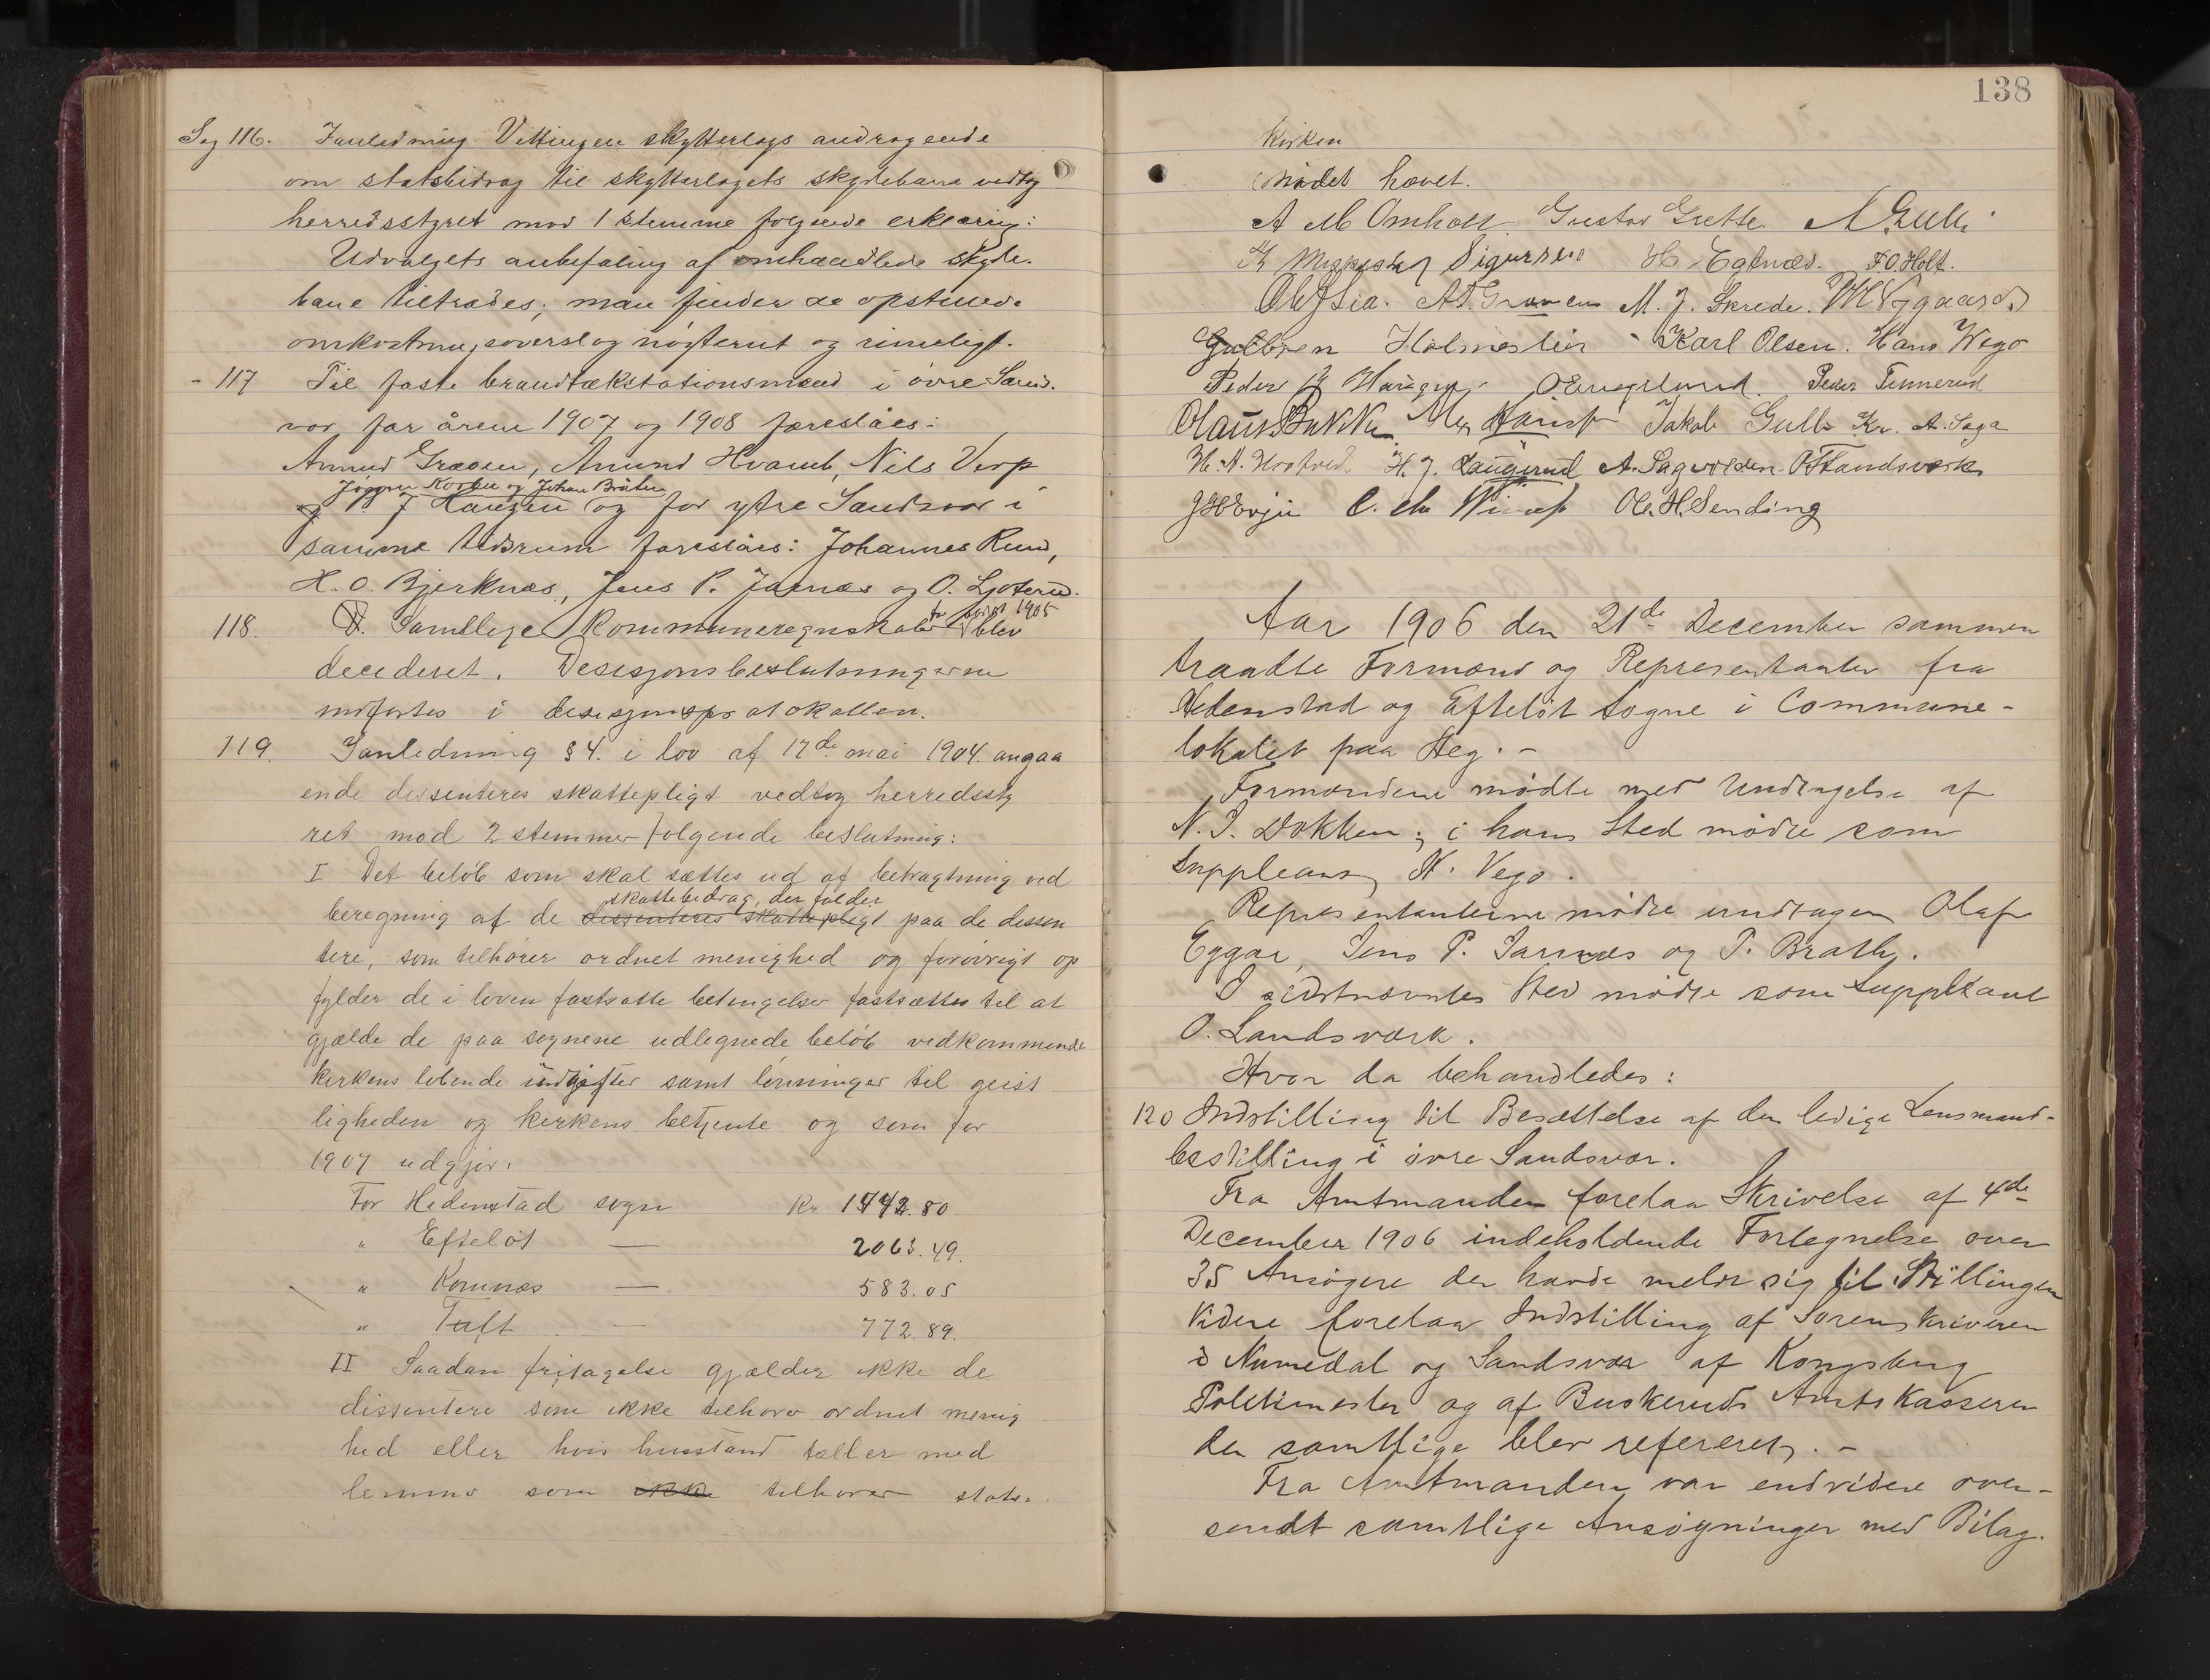 Sag 116. I anledning Vittingen skytterlags andragende
om statsbidrag til skytterlagets skydebane vedtog
herredsstyret mod 1 stemme følgende erklæring:
Udvalgets anbefaling af omhandlede skyde-
bane tiltrædes; man finder de opstillede
omkostningsoverslag nøgternt og rimeligt.
- 117 Til faste brandtakstationsmænd i øvre Sands-
vær for årene 1907 og 1908 foreslåes:
Amund Græven, Amund Hvamb, Nils Verp
Jørgen Korbu og Johan Bråten
og for ytre Sandsvær i
samme tidsrum foreslåes: Johannes Ruud,
H. O. Bjerknæs, Jens P. Jarnæs og O. Ljøterud.
for året 1905
118. Samtlige Kommuneregnskaber blev
decideret. Desisjonsbeslutningerne
indførtes i desisjonsprotokollen.
119. I anledning § 4. i lov af 17de mai 1904 angaa
ende dissenteres skattepligt vedtog herredssty
ret mod 2 stemmer følgende beslutning:
I Det beløb som skal sættes ud af betragtning ved
skattebidrag, der falder
beregning af de dissenteres skattepligt paa de dissen
tere, som tilhører ordnet menighed og forøvrigt op
fylder de i loven fastsatte betingelser fastsættes til at
gjælde de paa sognene udlegnede beløb vedkommende
kirkens løbende udgifter samt lønninger til geist
ligheden og kirkens betjente og som for
1907 udgjør:
For Hedenstad sogn Kr 1742.80
" Efteløt — 2063.49.
" Komnæs — 583.05
" Tuft — 772.89.
II Saadan fritagelse gjælder ikke de
dissentere som ikke tilhører ordnet menig
hed eller hvis husstand tæller med
lemmer som ikke tilhører stats-
138
kirken
Mødet hævet.
A M Omholt Gustav Grette A Gulli
Sigurssen H. Egtnæs. F.O. Holt.
Ole J Lia. A. Græven M. J. Skrede. M Nygaard
Gulbren Holmeslien Karl Olsen. Hans Wego
Peder Peder Tinnerud
Olaus Bakke Jakob Gulli Kr. A. Saga
H. J. Laugerud A. Sagvolden O Landsværk
J H Evju Ole H. Sending
Aar 1906 den 21de December sammen
traadte Formænd og Representanter fra
Hedenstad og Efteløt Sogne i Commune-
lokalet paa Heg. -
Formændene mødte med Undtagelse af
N. J. Dokken; i hans Sted mødte som
Suppleant H. Vego.
Representanterne mødte undtagen Olaf
Eggar, Jens P. Jarnæs og T. Bråthe.
I sidstnævntes Sted mødte som Suppleant
O. Landsværk.
Hvor da behandledes:
120 Indstilling til Besættelse af den ledige Lensmands-
bestilling i øvre Sandsvær.
Fra Amtmanden forelaa Skrivelse af 4de
December 1906 indeholdende Fortegnelse over
35 Ansøgere der havde meldt sig til Stillingen
Videre forelaa Indstilling af Sorenskriveren
i Numedal og Sandsvær af Kongsberg
Politimester og af Buskeruds Amtskasserer
der samtlige blev refereret. -
Fra Amtmanden var endvidere over-
sendt samtlige Ansøgninger med Bilag.